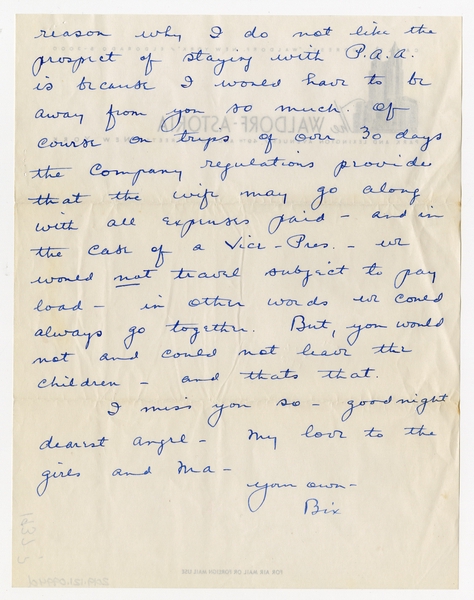 reason why I do not like the
prospect of staying with P.A.A.
is because I would have to be
away from you so much. Of
course on trips of over 30 days
the Company regulations provide
that the wife may go along
with all expenses paid - and in
the case of a Vice-Pres. - we
would not travel subject to pay
load - in other words we could
always go together. But, you would
not and could not leave the
children - and thats that.
I miss you so - goodnight
dearest angel - My love to the
girls and Ma -
your own -
Bix
The WALDORF-ASTORIA
FOR AIR MAIL OR FOREIGN MAIL USE